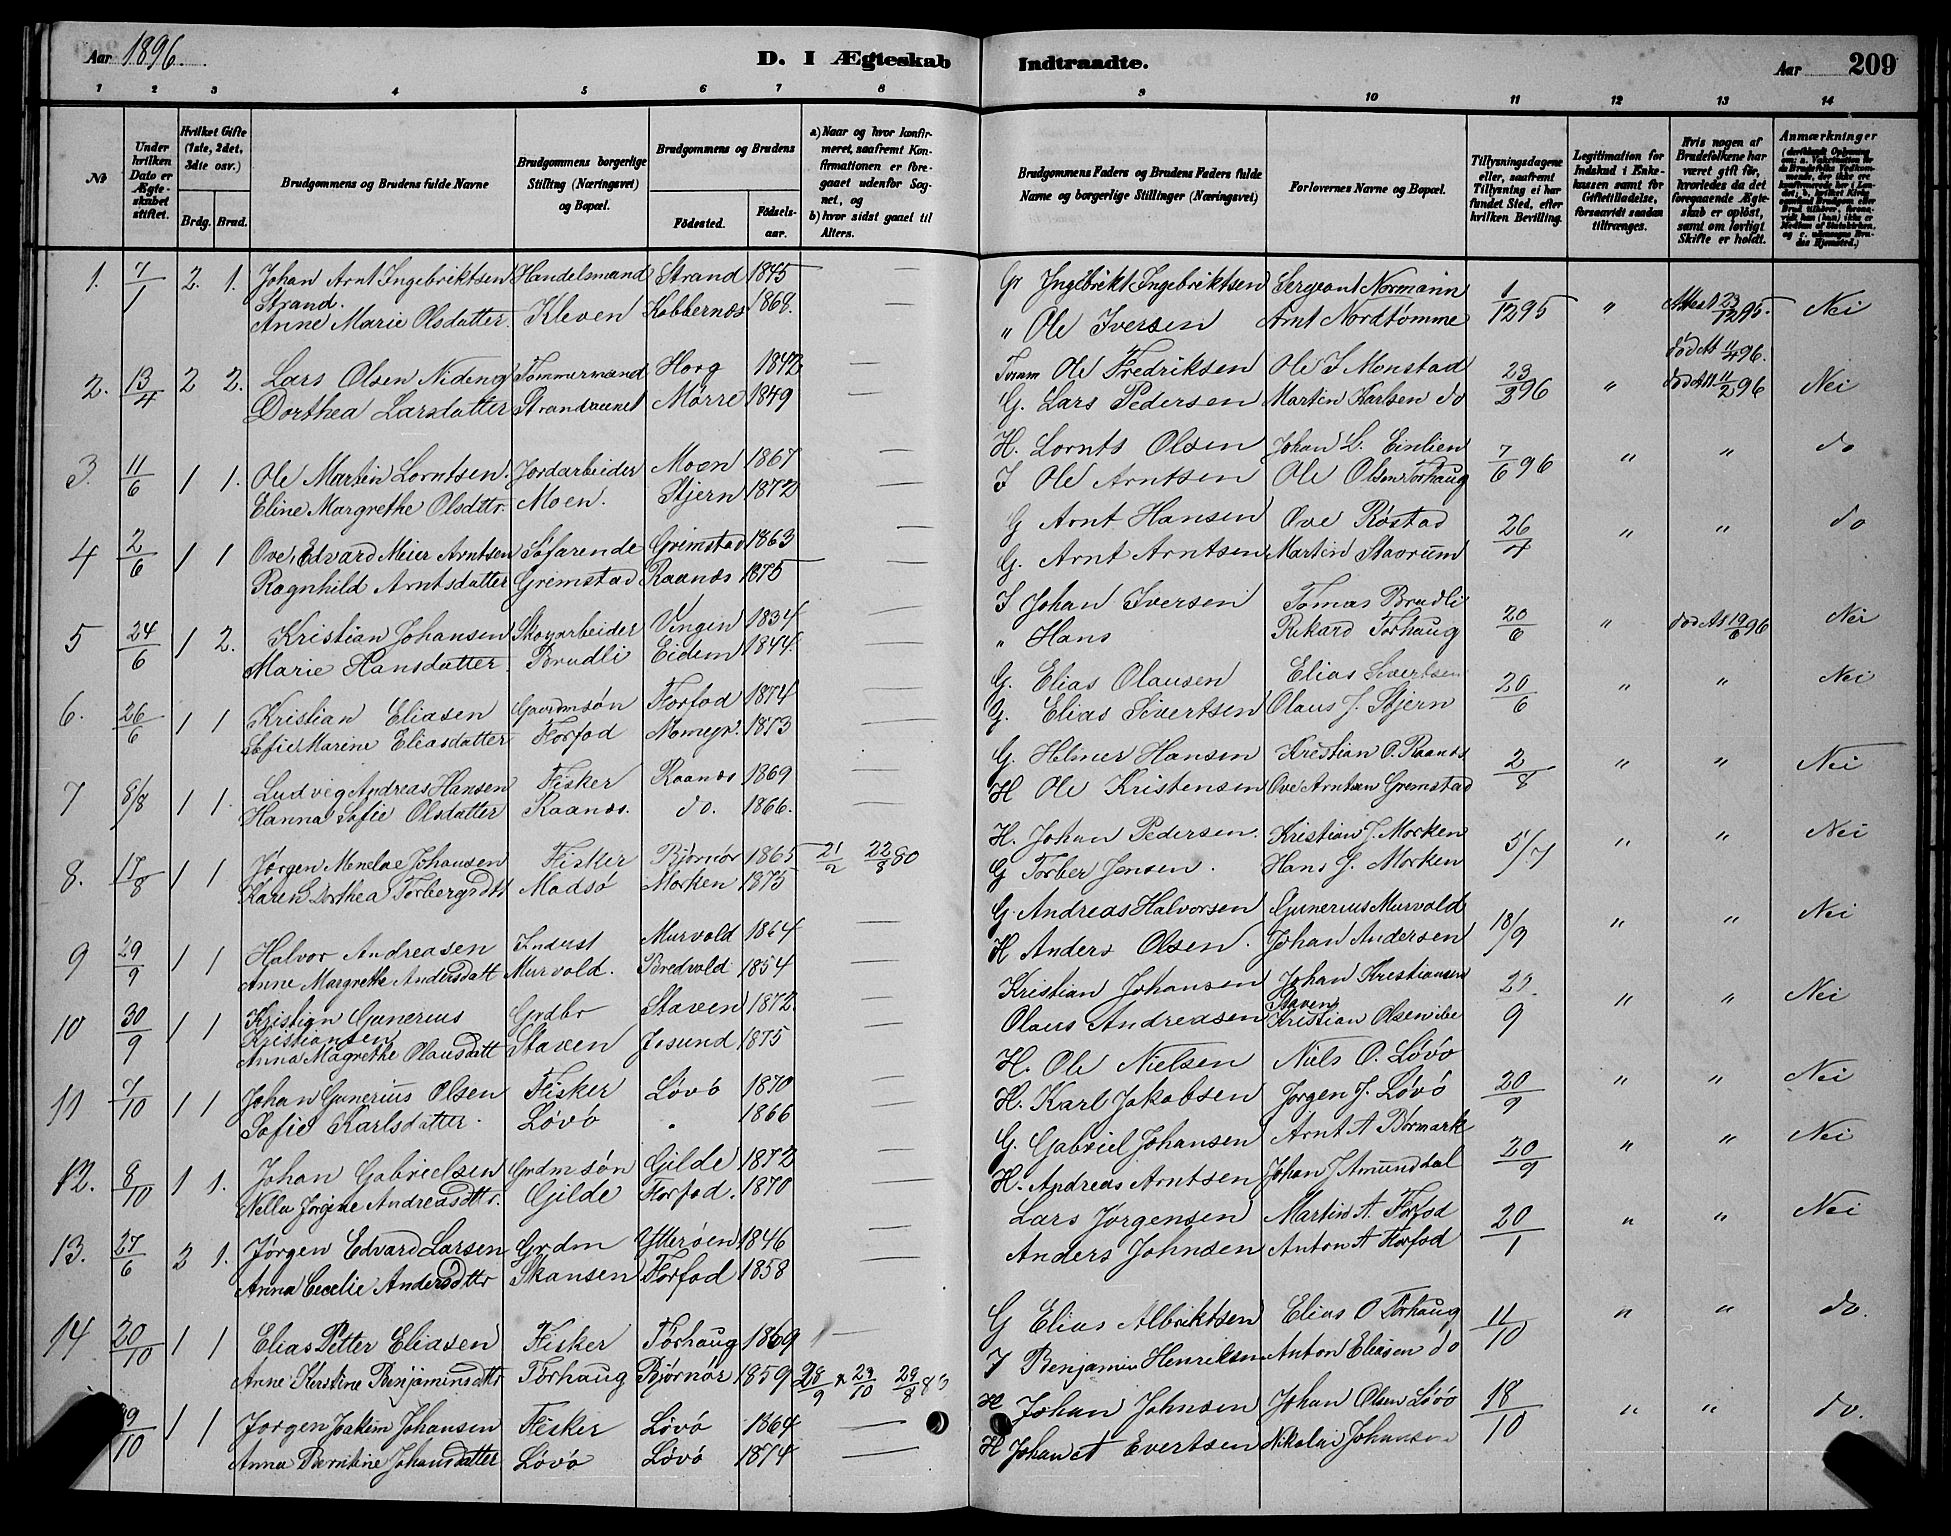 Aar 1896.
D. I Ægteskab Indtraadte.
Aar 209
1 2 3 4 5 6 7 8 9 10 11 12 13 14
No
Under hvilken Dato er Ægteskabet stiftet.
Hvilket Gifte (1ste, 2det, 3die osv.)
Brdg. Brud.
Brudgommens og Brudens fulde Navne
Brudgommens borgerlige Stilling (Næringsvei) og Bopæl.
Brudgommens og Brudens
Fødested. Fødselsaar.
a) Naar og hvor konfirmeret, saafremt Konfirmationen er foregaaet udenfor Sognet, og
b) hvor sidst gaaet til Alters.
Brudgommens Faders og Brudens Faders fulde Navne og borgerlige Stillinger (Næringsvei)
Forlovernes Navne og Bopæl.
Tillysningsdagene eller, saafremt Tillysning ei har fundet Sted, efter hvilken Bevilling.
Legitimation for Indskud i Enkekassen samt for Giftetilladelse, forsaavidt saadan tiltrænges.
Hvis nogen af Brudefolkene har været gift før, hvorledes da det foregaaende Ægteskab er opløst, samt om lovligt Skifte er holdt.
Anmærkninger
1. 7/1 2. 1. Johan Arnt Ingebriktsen Handelsmand Strand 1845 — Gr Ingebrikt Ingebriktsen Sergeant Normann 1/12 95 " Attest 23/12 95. Nei
Strand.
Anne Marie Olsdatter. Kleven Kobbernæs 1868. — " Ole Iversen Arnt Nordtømme
2. 13/4 2 2. Lars Olsen Nideng Tømmermand Horg 1842 — Tømm Ole Fredriksen Ole J Monstad 23/2 96 " død Att 11/4 96. Nei
Dorthea Larsdatter Strandaunet Mørre 1849 — G. Lars Pedersen Martin Karlsen do død Att 11/2 96
3. 11/6 1 1. Ole Martin Lorntsen. Jordarbeider Moen 1867 — H. Lornts Olsen Johan L. Einlien 7/6 96 " " do
Eline Margrethe Olsdttr. Moen. Stjern 1872 — I Ole Arntsen Ole Olsen Torhaug
4 2/6 1 1 Ove Edvard Meier Arntsen Søfarende Grimstad 1863 — G Arnt Hansen Ove Røstad 26/4 " " do
Ragnhild Arntsdatter Grimstad Raanæs 1875 — G. Arnt Arntsen Martin Stavrum
5 24/6 1 2. Kristian Johansen Skogarbeider Vingen 1834 — I Johan Iversen Tomas Brudli 20/6 " død Att 19/6 96 Nei
Marie Hansdatter. Brudli Eidem 1844. — " Hans Rikard Torhaug
6. 26/6 1 1 Kristian Eliasen Gaardmsøn Forfod 1874 — G. Elias Olausen Elias Sivertsen 20/6 " " Nei
Sofie Marine Eliasdatter Forfod 1873 — G. Elias Sivertsen Olaus J. Stjern
7 8/8 1 1. Ludvig Andreas Hansen Fisker Raanæs 1869 — G. Helmer Hansen Kristian O. Raanæs 2/8 " " Nei
Hanna Sofie Olsdatter Raanæs. do. 1866. — H Ole Kristensen Ove Arntsen Gremstad
8. 17/8 1 1 Jørgen Menelae Johansen Fisker Bjørnør 1865 21/2 22/8 80 H. Johan Pedersen. Kristian J. Morken 5/7 " " Nei
Karen Dorthea Torbergsdtt Madsø Morken 1875 G Torber Jensen. Hans J. Morken
9 29/9 1 1 Halvor Andreasen Inderst Murvold 1864 — G. Andreas Halvorsen Gunerius Murvold 18/9 " " Nei
Anne Margrethe Andersdatt Murvold. Bredvold 1854 — H Anders Olsen. Johan Andersen
10 30/9 1 1 Kristian Gunerius Grdbr Staven 1872. — Kristian Johansen Johan Kristiansen 20/9 " " Nei
Kristiansen Staven
Anna Magrethe Olausdatt Staven Jøsund 1875 — Olaus Andreasen Kristian Olsen ibe
11 7/10 1 1 Johan Gunerius Olsen Fisker Løvø 1870 — H. Ole Nielsen Niels O. Løvø 20/9 " " Nei
Sofie Karlsdatter. Løvø " 1866 — H. Karl Jakobsen Jørgen J. Løvø
12. 8/10 1 1. Johan Gabrielsen Grdmsøn Gilde 1872 — G. Gabriel Johansen Arnt A Børmark 20/9 " " Nei
Nella Jørgine Andreasdttr. Gjlde Forfod. 1870 — H. Andreas Arntsen Johan J Amunddal
13. 27/6 2 1. Jørgen Edvard Larsen Grdm Ytterøen 1846 — Lars Jørgensen Martin A. Forfod 20/1 " " Nei
Anna Cecelie Andersdttr Skansen Forfod 1858 — Anders Johnsen Anton A Forfod
14 20/10 1 1 Elias Petter Eliasen Fisker Torhaug 1869 — G Elias Albriktsen Elias O Torhaug 11/10 " " do.
Anne Kerstine Benjaminsdttr Torhaug Bjørnør 1859 28/9 29/10 29/8 I Benjamin Henriksen Anton Eliasen do
/10 1 1 Jørgen Joakim Johansen Fisker Løvø 1864 — H Johan Johnsen Johan Olsen Løvø 18/10 " " do.
Anna Johansdatter Løvø Løvø 1874 — H Johan A Evertsen Nikolai Johansen